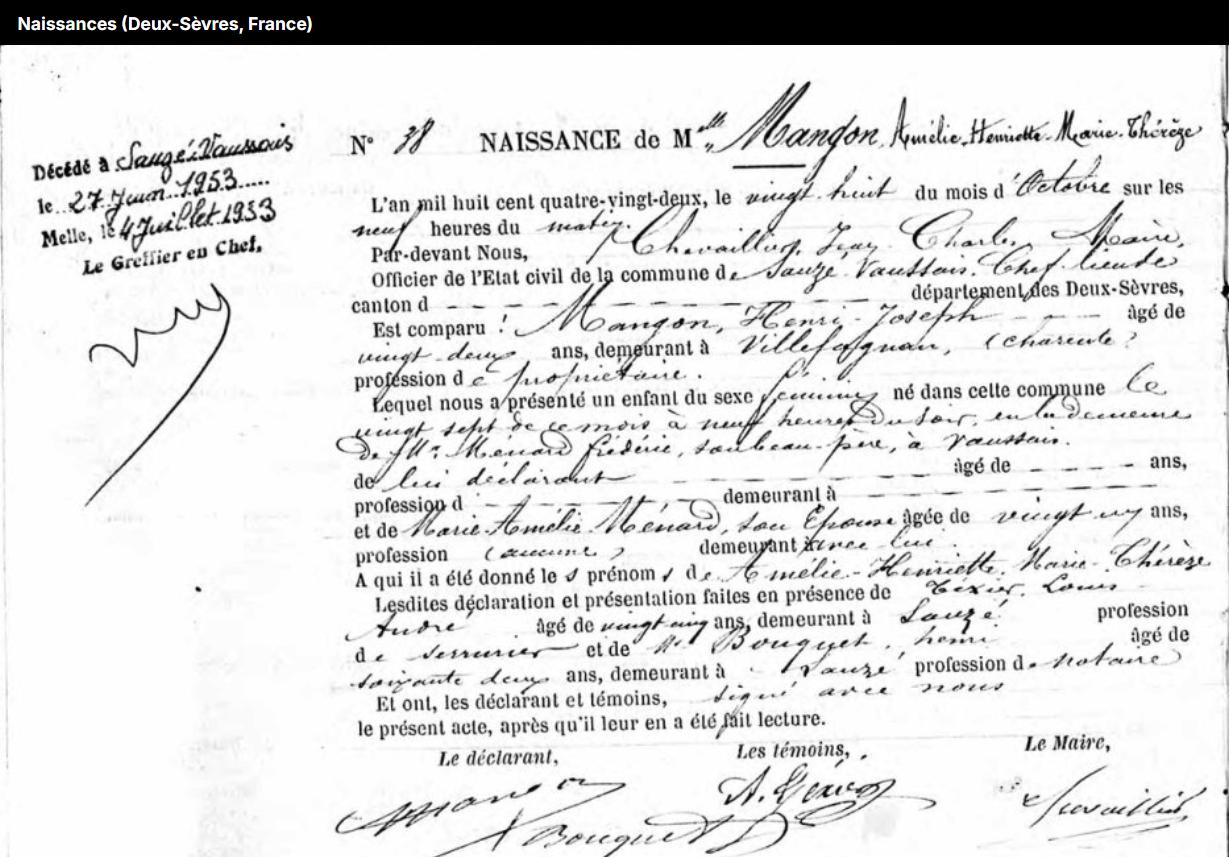 Naissances (Deux-Sèvres, France)
Décédé à Sauzé-Vaussais
le 27 Juin 1953
Melle, le 4 Juillet 1953
Le Greffier en Chef,
N° 38 NAISSANCE de Mlle Mangon, Amélie-Henriette-Marie-Thérèze
L'an mil huit cent quatre-vingt-deux, le vingt huit du mois d'Octobre sur les
neuf heures du matin.
Par-devant Nous, Chevaillier, Jean Charles, Maire,
Officier de l'Etat civil de la commune de Sauzé-Vaussais. Chef-lieu de
canton d département des Deux-Sèvres,
Est comparu : Mangon, Henri-Joseph âgé de
vingt deux ans, demeurant à Villefagnan, (Charente)
profession de propriétaire.
Lequel nous a présenté un enfant du sexe féminin né dans cette commune le
vingt sept de ce mois à neuf heures du soir, en la demeure
de Mr. Ménard frédéric, son beau-père, à Vaussais.
de lui déclarant âgé de ans,
profession d demeurant à
et de Marie-Amélie Ménard, son Epouse âgée de vingt un ans,
profession (aucune) demeurant avec lui.
A qui il a été donné les prénoms de Amélie-Henriette-Marie-Thérèze
Lesdites déclaration et présentation faites en présence de Téxier, Louis
André âgé de vingt cinq ans, demeurant à Sauzé profession
de serrurier et de Mr. Bouquet, henri âgé de
soixante deux ans, demeurant à Sauzé profession de notaire
Et ont, les déclarant et témoins, signé avec nous
le présent acte, après qu'il leur en a été fait lecture.
Le déclarant, Les témoins, Le Maire,
Mangon
Bouquet
Chevaillier